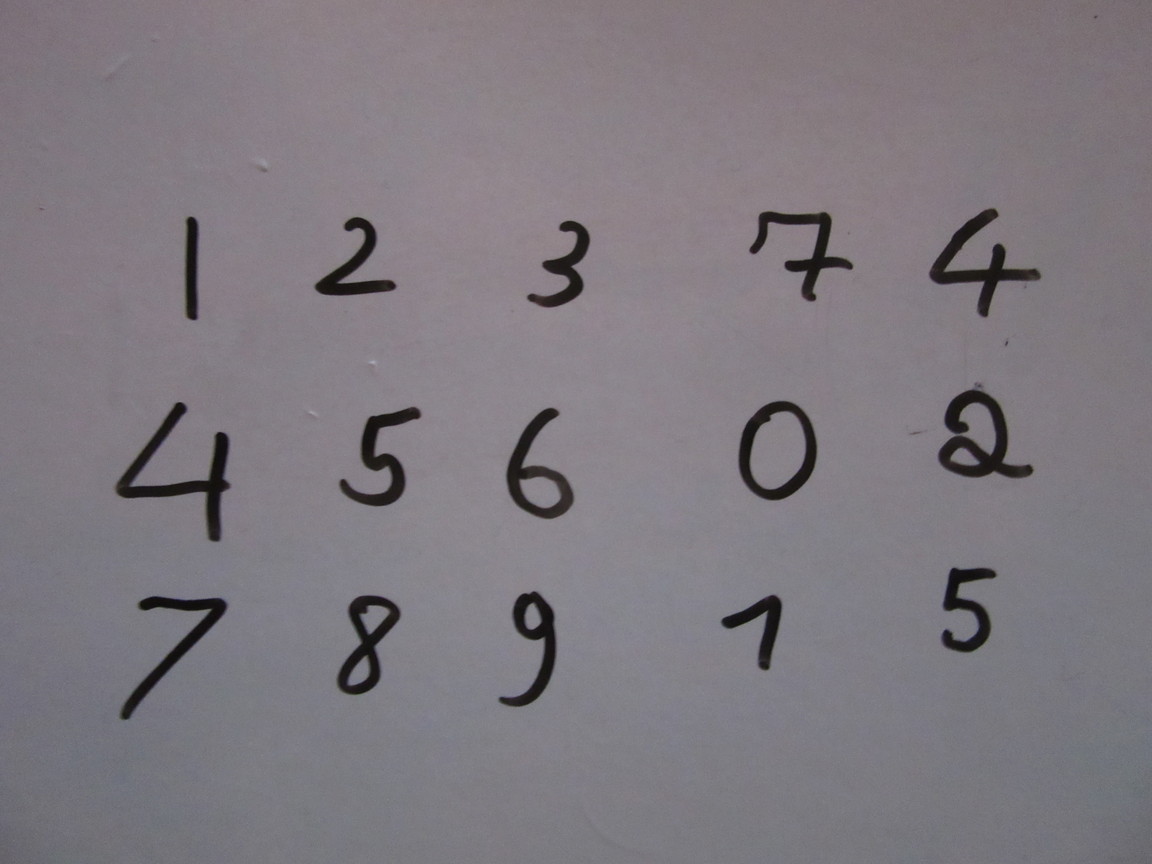 1 2 3 7 4
4 5 6 0 2
7 8 9 1 5